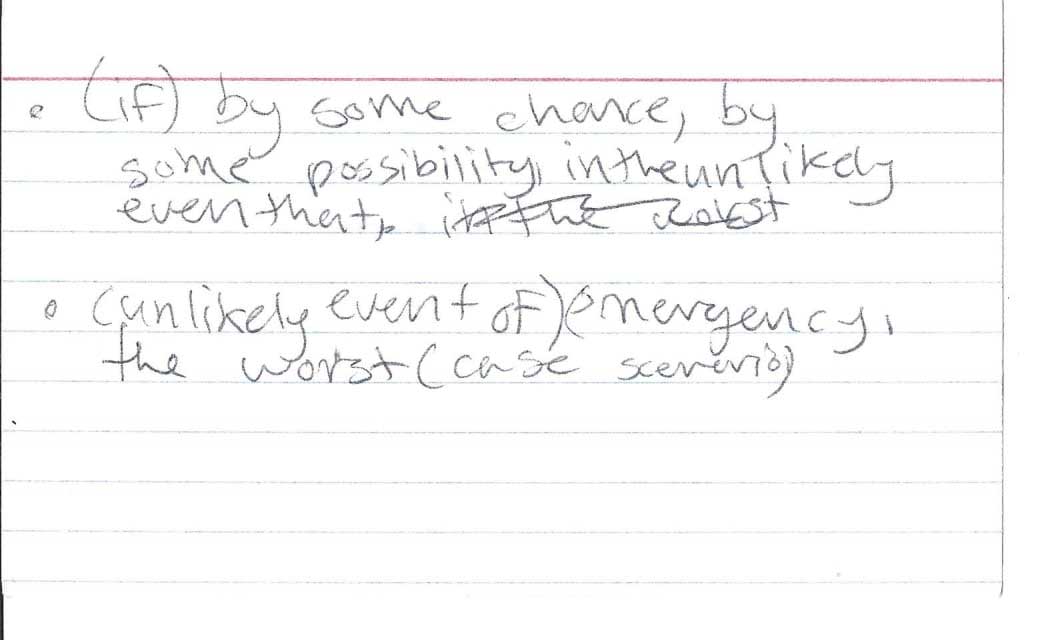 • (if) by some chance, by
some possibility, in the unlikely
even that,
• (unlikely event of) emergency,
the worst (case scenario)